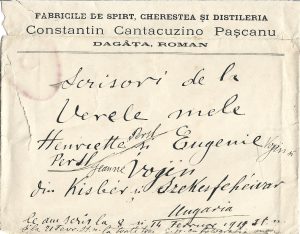 FABRICILE DE SPIRT, CHERESTEA ȘI DISTILERIA
Constantin Cantacuzino Pașcanu
DAGÂȚA, ROMAN
Scrisori de la
Verele mele
Henriette și Eugenie
Persl Jeanne Vojin
din Kisber și Szekesfehérvar
Ungaria
le am scris la 8 și 14 Februar 1919 st n